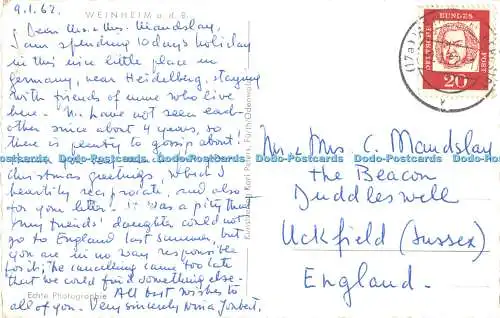 9.1.62.
WEINHEIM a. d. B.
Dear Mr. & Mrs. Mandslay,
I am spending 10 days holiday
in this nice little place in
Germany, near Heidelberg, staying
with friends of mine who live
here. We have not seen each-
other since about 4 years, so
there is plenty to gossip about!
christmas greetings, which I
heartily reciprocate, and also
for your letter. It was a pity that
my friends' daughter could not
go to England last summer, but
you are in no way responsible
for it; the cancelling came too late
that we could find something else.
All best wishes to
all of you. Very sincerely Nina
Echte Photographie
Karl Peters, Fürth/Odenwald
DEUTSCHE BUNDESPOST
20
(17a)
Mr. & Mrs. C. Mandslay
the Beacon
Duddleswell
Uckfield (Sussex)
England.
Dodo-Postcards Dodo-Postcards Dodo-Postcards Dodo-Postcards Dodo-Postcards